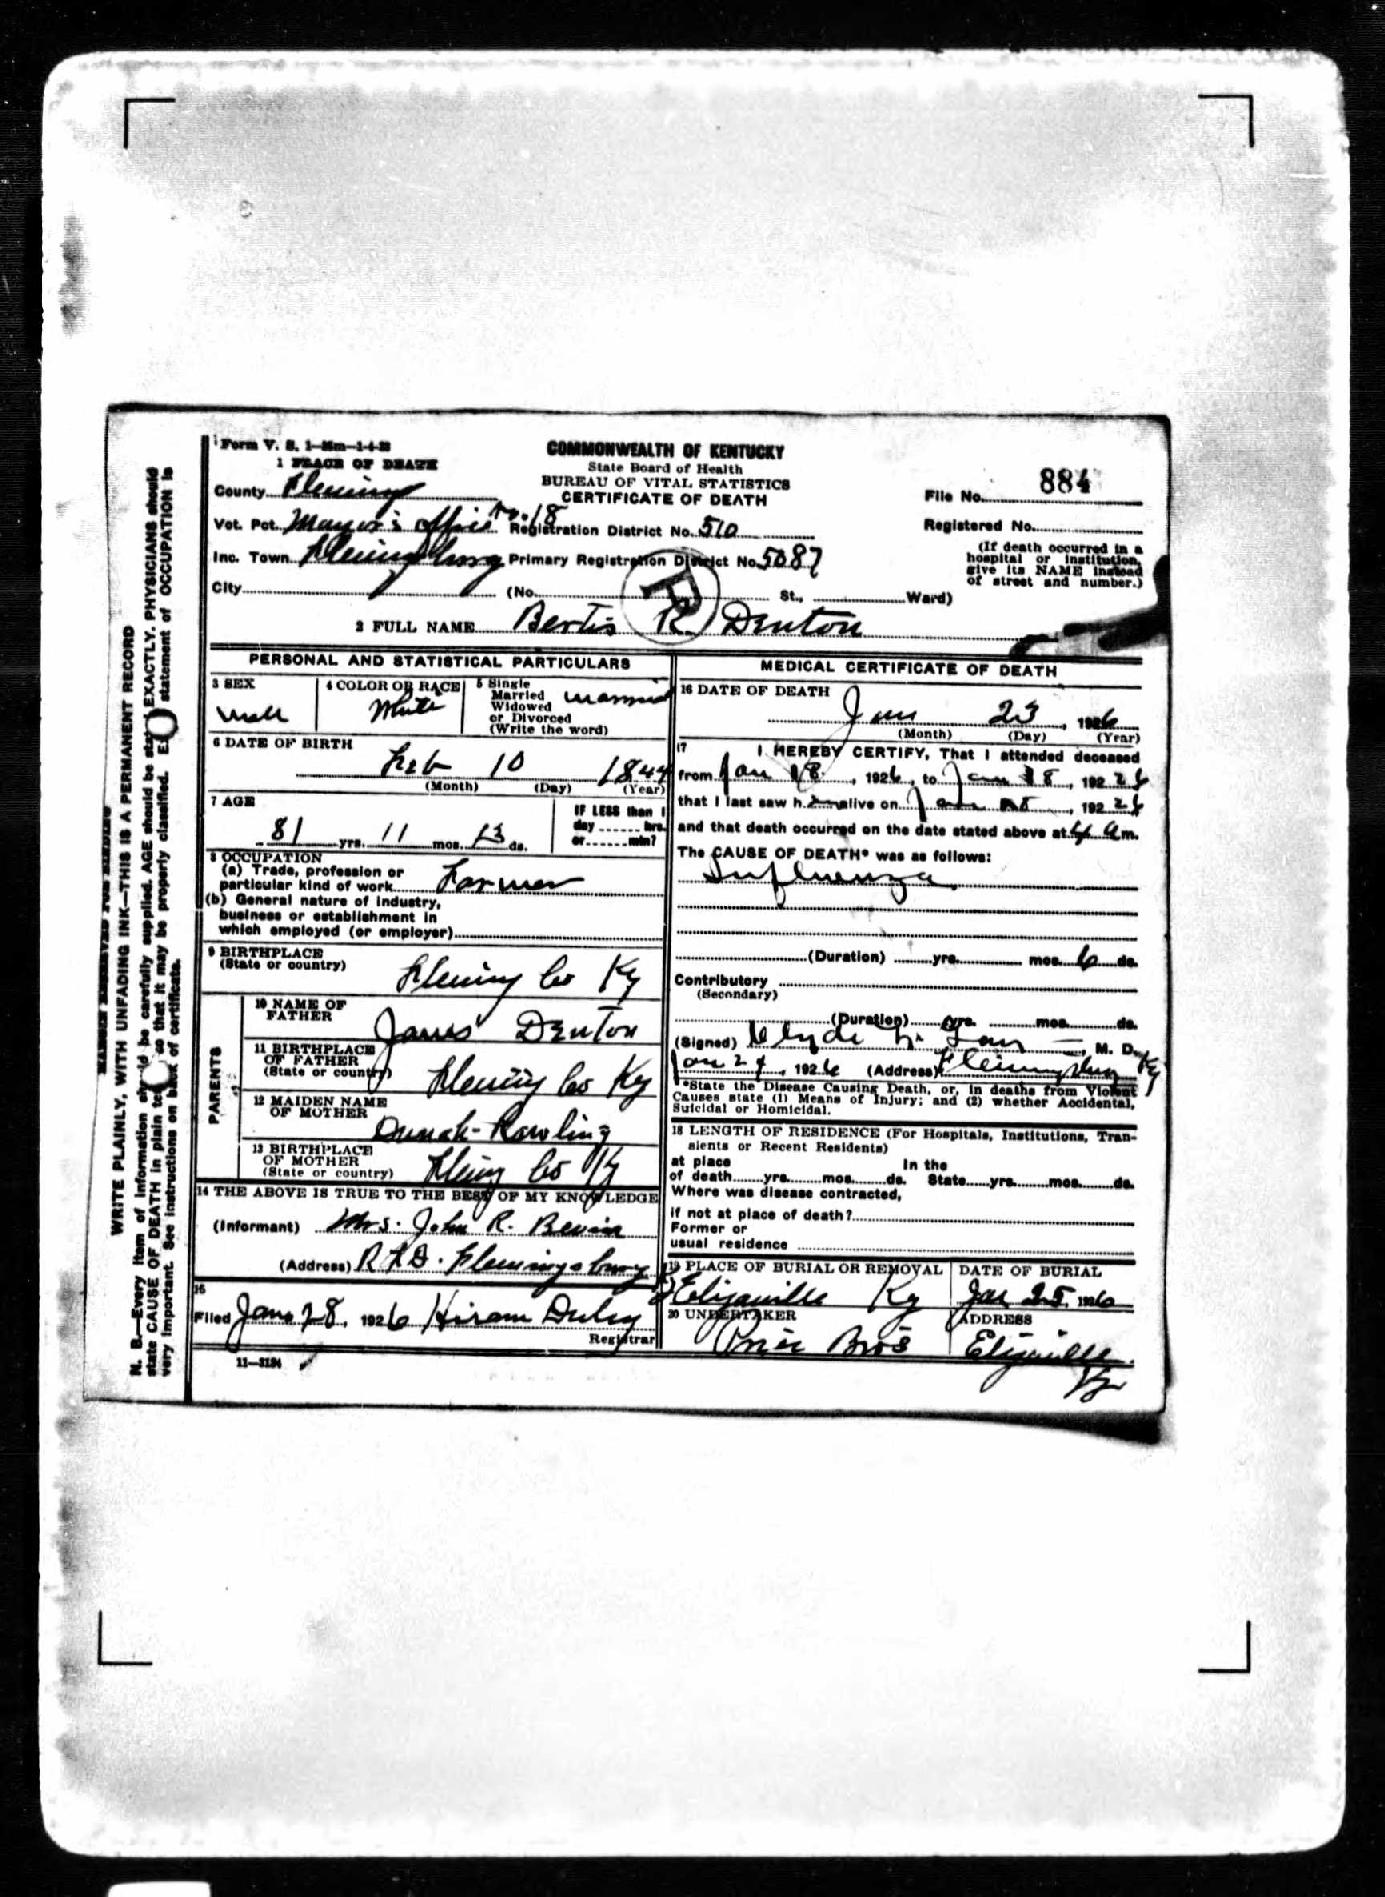 Form V. S. 1
1 PLACE OF DEATH
COMMONWEALTH OF KENTUCKY
State Board of Health
BUREAU OF VITAL STATISTICS
CERTIFICATE OF DEATH
File No. 884
County Fleming
Vot. Pct. Mayor's Office No. 18 Registration District No. 510
Registered No.
Inc. Town Flemingsburg Primary Registration District No. 5087
(If death occurred in a
hospital or institution,
give its NAME instead
of street and number.)
City (No. St., Ward)
R
2 FULL NAME Bertis R Denton
PERSONAL AND STATISTICAL PARTICULARS
3 SEX
Male
4 COLOR OR RACE
White
5 Single
Married
Widowed
or Divorced
(Write the word)
Married
6 DATE OF BIRTH
Feb 10 1844
(Month) (Day) (Year)
7 AGE
81 yrs. 11 mos. 13 ds.
IF LESS than 1
day hrs.
or min?
8 OCCUPATION
(a) Trade, profession or
particular kind of work Farmer
(b) General nature of industry,
business or establishment in
which employed (or employer)
9 BIRTHPLACE
(State or country)
Fleming Co Ky
PARENTS
10 NAME OF
FATHER
James Denton
11 BIRTHPLACE
OF FATHER
(State or country)
Fleming Co Ky
12 MAIDEN NAME
OF MOTHER
Rawling
13 BIRTHPLACE
OF MOTHER
(State or country)
Fleming Co Ky
14 THE ABOVE IS TRUE TO THE BEST OF MY KNOWLEDGE
(Informant) Mrs. John R.
(Address) R F D. Flemingsburg
15
Filed Jan 28, 1926 Hiram Duley
Registrar
11—3184
MEDICAL CERTIFICATE OF DEATH
16 DATE OF DEATH
Jan 23, 1926
(Month) (Day) (Year)
17
I HEREBY CERTIFY, That I attended deceased
from Jan 18, 1926, to Jan 18, 192 26
that I last saw him alive on Jan 18, 192 26
and that death occurred on the date stated above at 4 a m.
The CAUSE OF DEATH* was as follows:
Influenza
(Duration) yrs. mos. 6 ds.
Contributory
(Secondary)
(Duration) yrs. mos. ds.
(Signed) Clyde M. D.
Jan 24, 1926 (Address) Flemingsburg Ky
*State the Disease Causing Death, or, in deaths from Violent
Causes state (1) Means of Injury; and (2) whether Accidental,
Suicidal or Homicidal.
18 LENGTH OF RESIDENCE (For Hospitals, Institutions, Tran-
sients or Recent Residents)
at place In the
of death yrs. mos. ds. State yrs. mos. ds.
Where was disease contracted,
if not at place of death?
Former or
usual residence
19 PLACE OF BURIAL OR REMOVAL
Elizaville Ky
DATE OF BURIAL
Jan 25, 1926
20 UNDERTAKER
Price Bros
ADDRESS
Elizaville
Ky
MARGIN RESERVED FOR BINDING
WRITE PLAINLY, WITH UNFADING INK—THIS IS A PERMANENT RECORD
N. B.—Every item of information should be carefully supplied. AGE should be stated EXACTLY. PHYSICIANS should
state CAUSE OF DEATH in plain terms so that it may be properly classified. statement of OCCUPATION is
very important. See instructions on back of certificate.